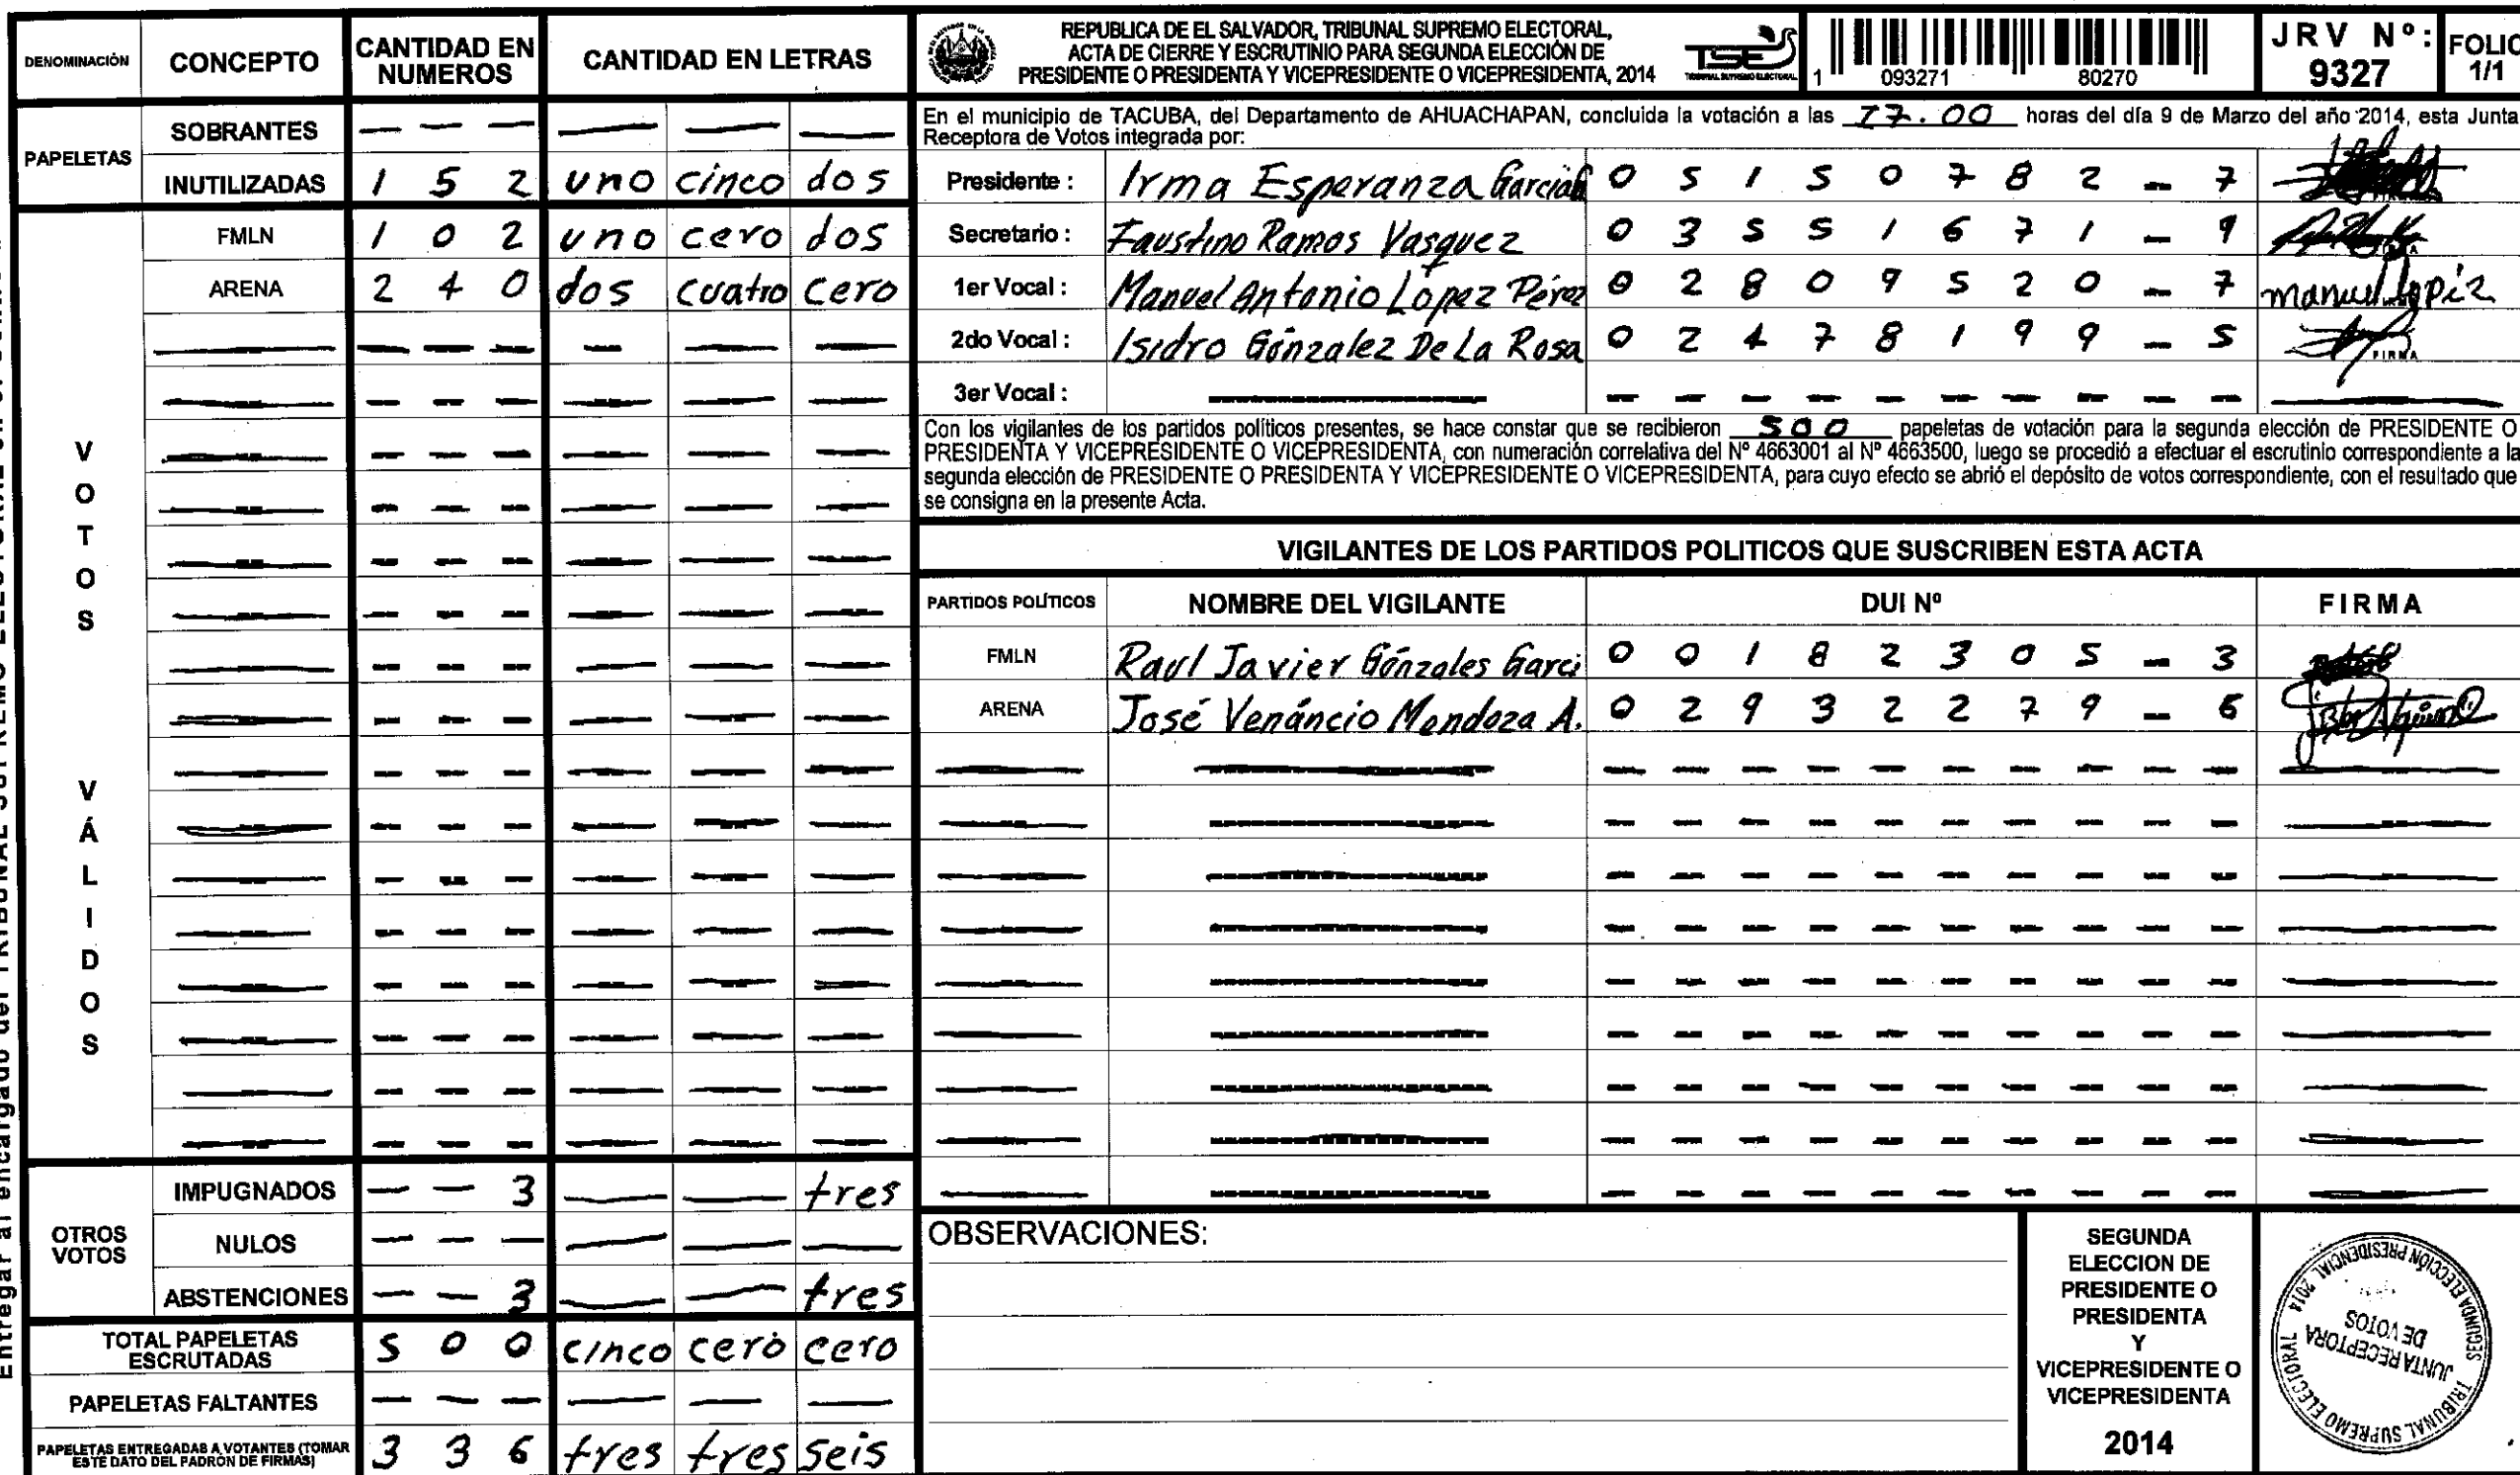 DENOMINACIÓN CONCEPTO CANTIDAD EN NUMEROS CANTIDAD EN LETRAS
PAPELETAS
SOBRANTES — — — — — —
INUTILIZADAS 1 5 2 uno cinco dos
VOTOS VÁLIDOS
FMLN 1 0 2 uno cero dos
ARENA 2 4 0 dos cuatro cero
OTROS VOTOS
IMPUGNADOS — — 3 — — tres
NULOS — — — — — —
ABSTENCIONES — — 3 — — tres
TOTAL PAPELETAS ESCRUTADAS 5 0 0 cinco cero cero
PAPELETAS FALTANTES — — — — — —
PAPELETAS ENTREGADAS A VOTANTES (TOMAR ESTE DATO DEL PADRON DE FIRMAS) 3 3 6 tres tres seis
REPUBLICA DE EL SALVADOR, TRIBUNAL SUPREMO ELECTORAL,
ACTA DE CIERRE Y ESCRUTINIO PARA SEGUNDA ELECCIÓN DE
PRESIDENTE O PRESIDENTA Y VICEPRESIDENTE O VICEPRESIDENTA, 2014
TSE
TRIBUNAL SUPREMO ELECTORAL
1 093271 80270
JRV Nº: 9327
FOLIO 1/1
En el municipio de TACUBA, del Departamento de AHUACHAPAN, concluida la votación a las 17.00 horas del día 9 de Marzo del año 2014, esta Junta
Receptora de Votos integrada por:
Presidente : Irma Esperanza 0 5 1 5 0 7 8 2 - 7
Secretario : Faustino Ramos Vasquez 0 3 5 5 1 6 7 1 - 9
1er Vocal : Manuel Antonio López Pérez 0 2 8 0 9 5 2 0 - 7 manuel lopéz
2do Vocal : Isidro Gónzalez De La Rosa 0 2 4 7 8 1 9 9 - 5 FIRMA
3er Vocal :
Con los vigilantes de los partidos políticos presentes, se hace constar que se recibieron 500 papeletas de votación para la segunda elección de PRESIDENTE O
PRESIDENTA Y VICEPRESIDENTE O VICEPRESIDENTA, con numeración correlativa del Nº 4663001 al Nº 4663500, luego se procedió a efectuar el escrutinio correspondiente a la
segunda elección de PRESIDENTE O PRESIDENTA Y VICEPRESIDENTE O VICEPRESIDENTA, para cuyo efecto se abrió el depósito de votos correspondiente, con el resultado que
se consigna en la presente Acta.
VIGILANTES DE LOS PARTIDOS POLITICOS QUE SUSCRIBEN ESTA ACTA
PARTIDOS POLÍTICOS NOMBRE DEL VIGILANTE DUI Nº FIRMA
FMLN Raul Javier Gónzales Garci 0 0 1 8 2 3 0 5 - 3
ARENA José Venáncio Mendoza A. 0 2 9 3 2 2 7 9 - 6
OBSERVACIONES:
SEGUNDA
ELECCION DE
PRESIDENTE O
PRESIDENTA
Y
VICEPRESIDENTE O
VICEPRESIDENTA
2014
TRIBUNAL SUPREMO ELECTORAL
SEGUNDA ELECCIÓN PRESIDENCIAL 2014
JUNTA RECEPTORA
DE VOTOS